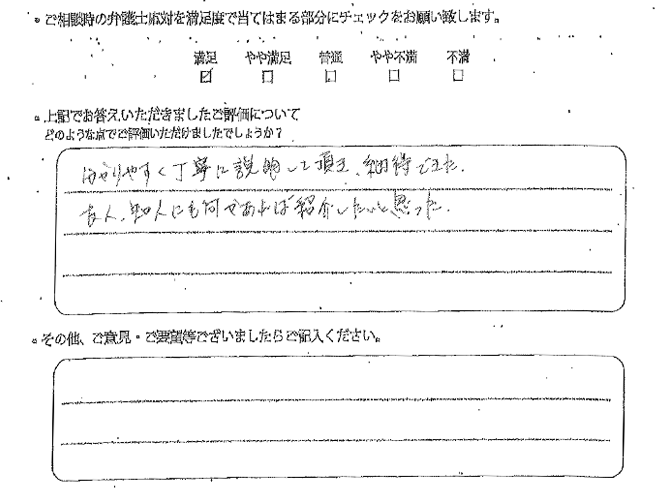 ご相談時の弁護士応対を満足度で当てはまる部分にチェックをお願い致します。
満足 やや満足 普通 やや不満 不満
☑ □ □ □ □
上記でお答えいただきましたご評価について
どのような点でご評価いただけましたでしょうか?
分かりやすく丁寧に説明して頂き、納得できた。
友人、知人にも何かあれば紹介したいと思った。
その他、ご意見・ご要望等ございましたらご記入ください。